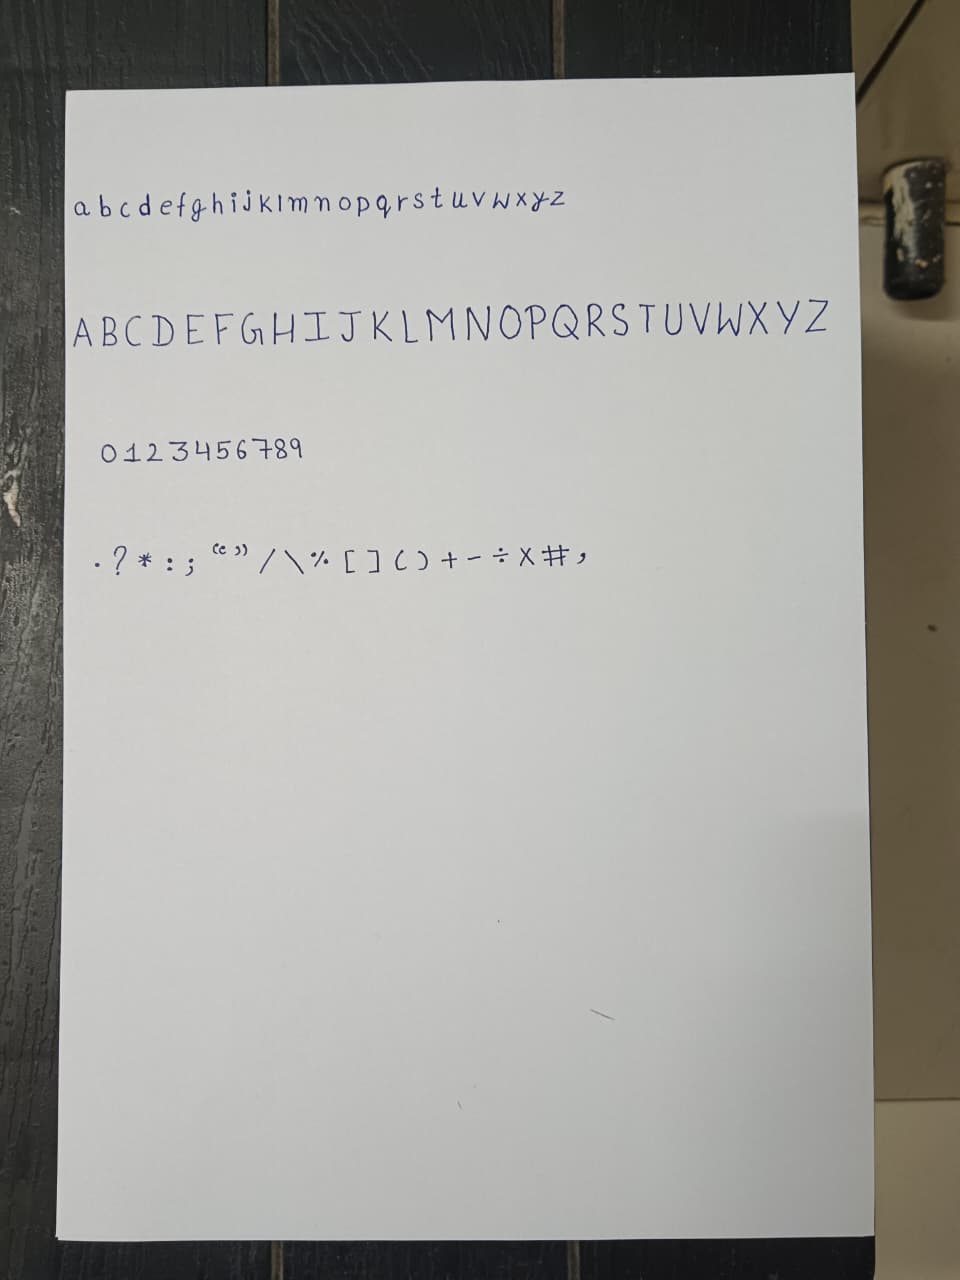 a b c d e f g h i j k l m n o p q r s t u v w x y z
A B C D E F G H I J K L M N O P Q R S T U V W X Y Z
0 1 2 3 4 5 6 7 8 9
. ? * : ; “ ” / \ % [ ] ( ) + - ÷ x # ,